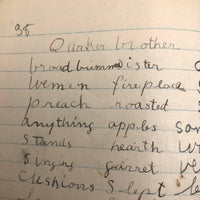 98
Quaker brother
broad brimmed ister
women fireplace
preach roasted S
anything apples som
stands hearth W
singing garret ve
cushions slept be